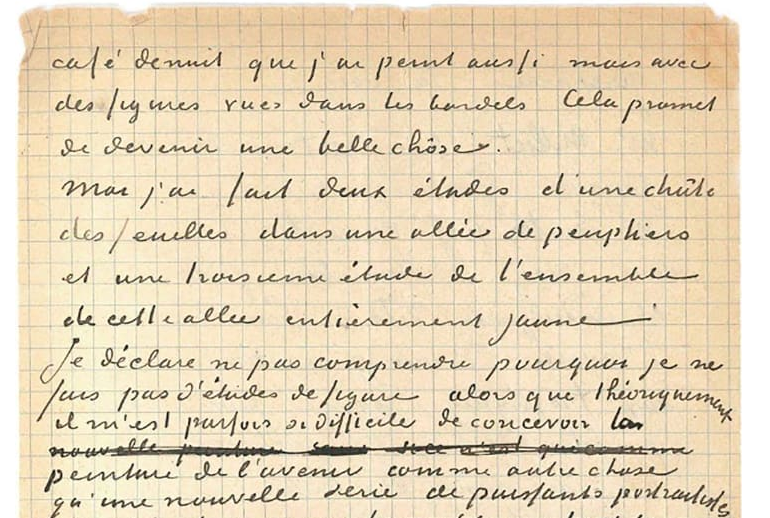 café de nuit que j'ai peint aussi mais avec
des figures vues dans les bordels Cela promet
de devenir une belle chôse.
Moi j'ai fait deux études d'une chûte
des feuilles dans une allée de peupliers
et une troisieme étude de l'ensemble
de cette allee entièrement jaune
Je déclare ne pas comprendre pourquoi je ne
fais pas d'études de figure alors que théoriquement
il m'est parfois si difficile de concevoir la
nouvelle peinture que comme
peinture de l'avenir comme autre chose
qu'une nouvelle serie de puissants portraitistes